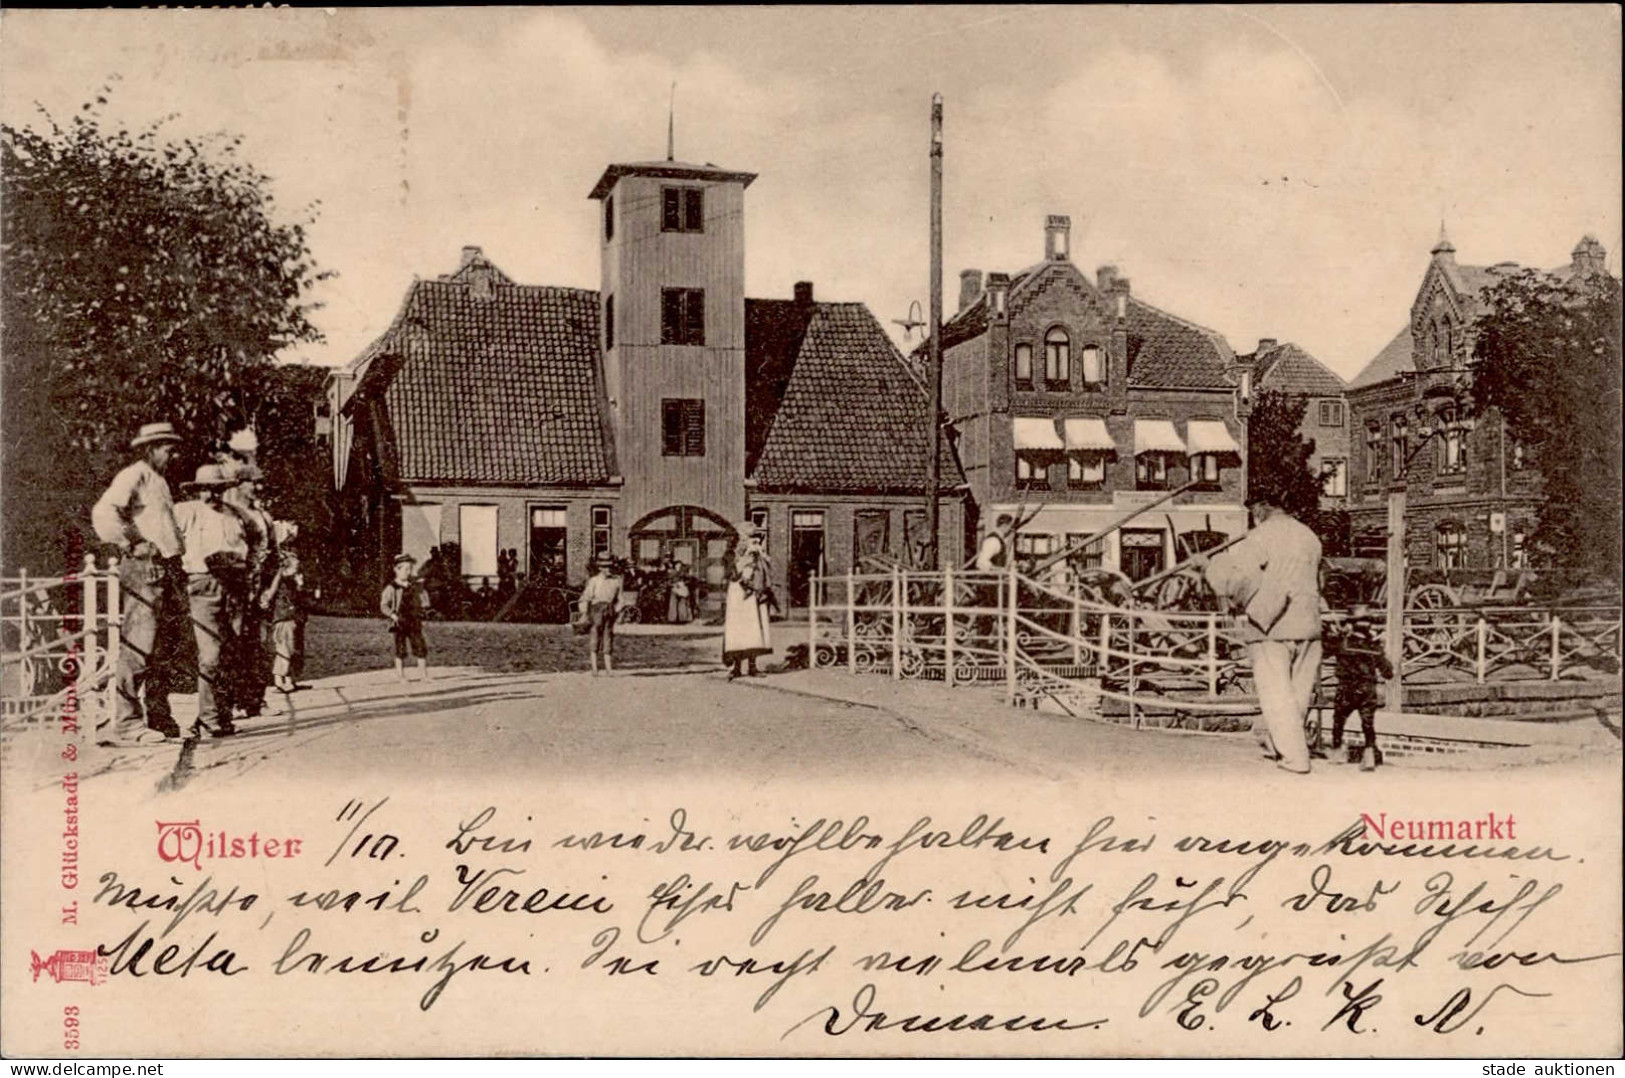 Wilster
Neumarkt
11/10. Bin wieder wohlbehalten hier angekommen.
Mußte, weil Verein halber nicht fuhr, das Schiff
Meta benutzen. Sei recht vielmals gegrüßt von
Deinem E. L. K. N.
M. Glückstadt &
3593
stade auktionen
www.delcampe.net